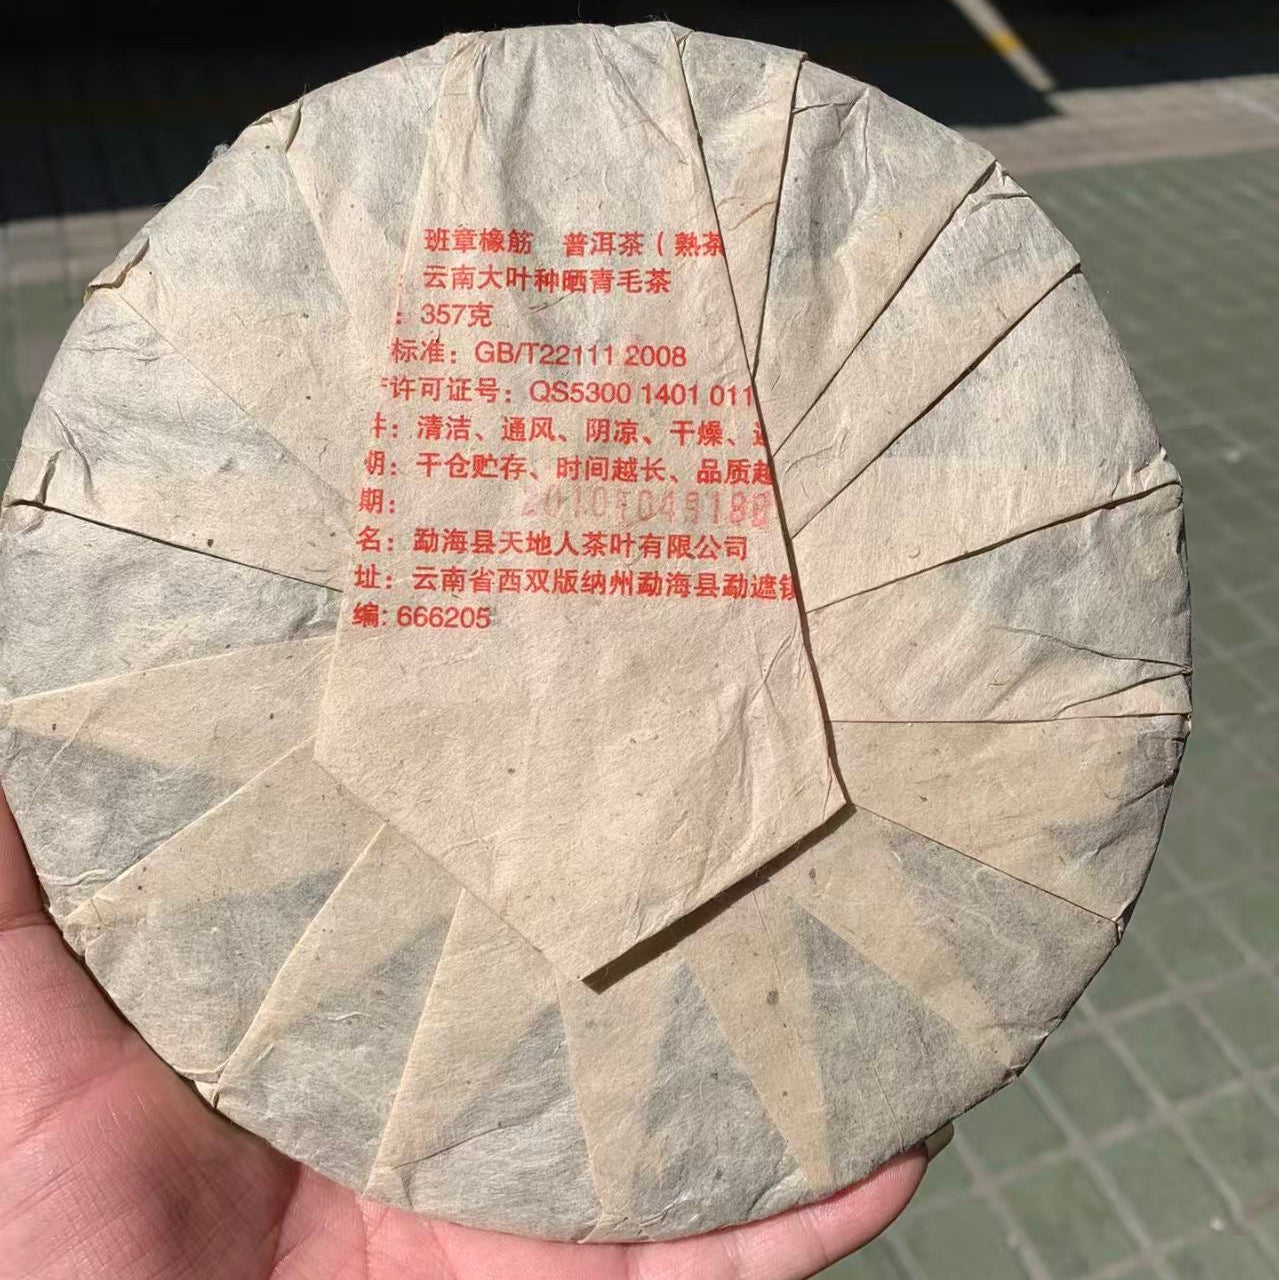 班章橡筋 普洱茶(熟茶
: 云南大叶种晒青毛茶
: 357克
标准: GB/T22111 2008
许可证号: QS5300 1401 011
: 清洁、通风、阴凉、干燥、
期: 干仓贮存、时间越长、品质越
期:
名: 勐海县天地人茶叶有限公司
址: 云南省西双版纳州勐海县勐遮镇
编: 666205